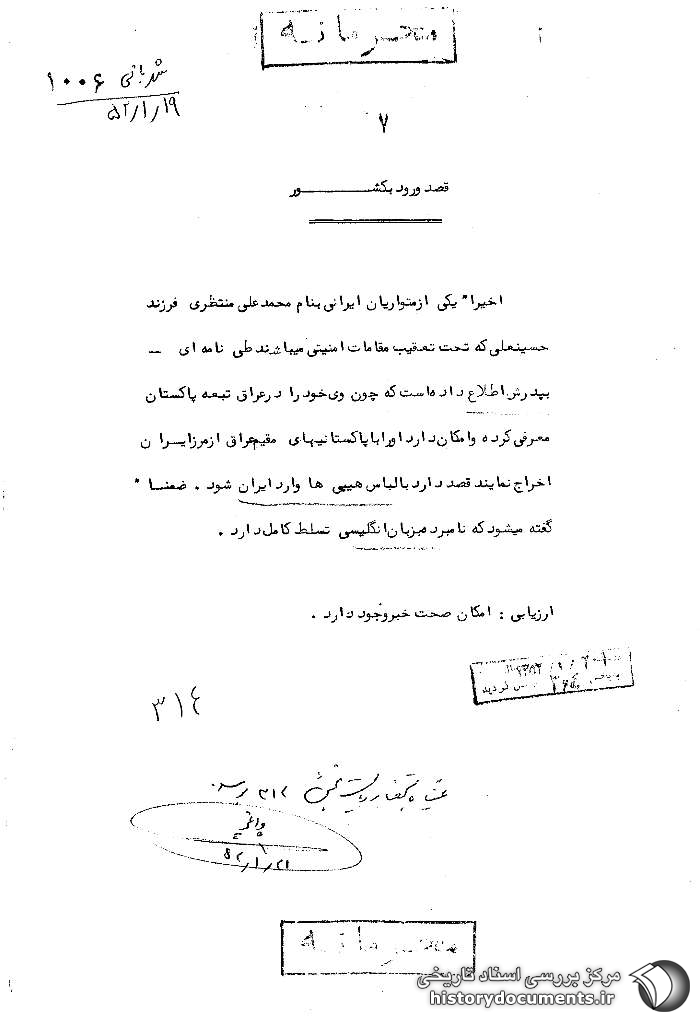 محرمانه
شهربانی ۱۰۰۶
۵۲/۱/۱۹
۷
قصد ورود بکشـــــــــور
اخیرا" یکی ازمتواریان ایرانی بنام محمدعلی منتظری فرزند
حسینعلی که تحت تعقیب مقامات امنیتی میباشند طی نامه ای —
بپدرش اطلاع داده است که چون وی خود را درعراق تبعه پاکستان
معرفی کرده وامکان دارد اورا باپاکستانیهای مقیم عراق ازمرزایران
اخراج نمایند قصد دارد بالباس هیپی ها وارد ایران شود . ضمنا "
گفته میشود که نامبرده بزبان انگلیسی تسلط کامل دارد .
ارزیابی : امکان صحت خبروجود دارد .
۳۱۴
۵۲/۱/۲۱
محرمانه
مرکز بررسی اسناد تاریخی
historydocuments.ir